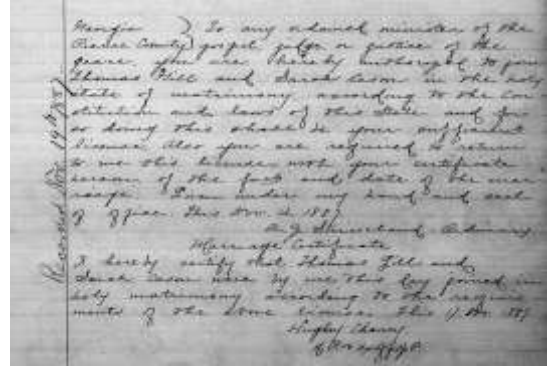 Georgia ) To any ordained minister of the
Pierce County) gospel judge or justice of the
peace you are hereby authorized to join
Thomas Gill and Sarah Cason in the holy
state of matrimony according to the Con
stitution and laws of this State and for
so doing this shall be your sufficient
license Also you are required to return
to me this license with your certificate
hereon of the fact and date of the mar
riage. Given under my hand and seal
of office. This Nov. 1887
Ordinary
Marriage Certificate
I hereby certify that Thomas Gill and
Sarah Cason were by me this day joined in
holy matrimony according to the require
ments of the above license this 1887
Recorded Nov 19th 1887